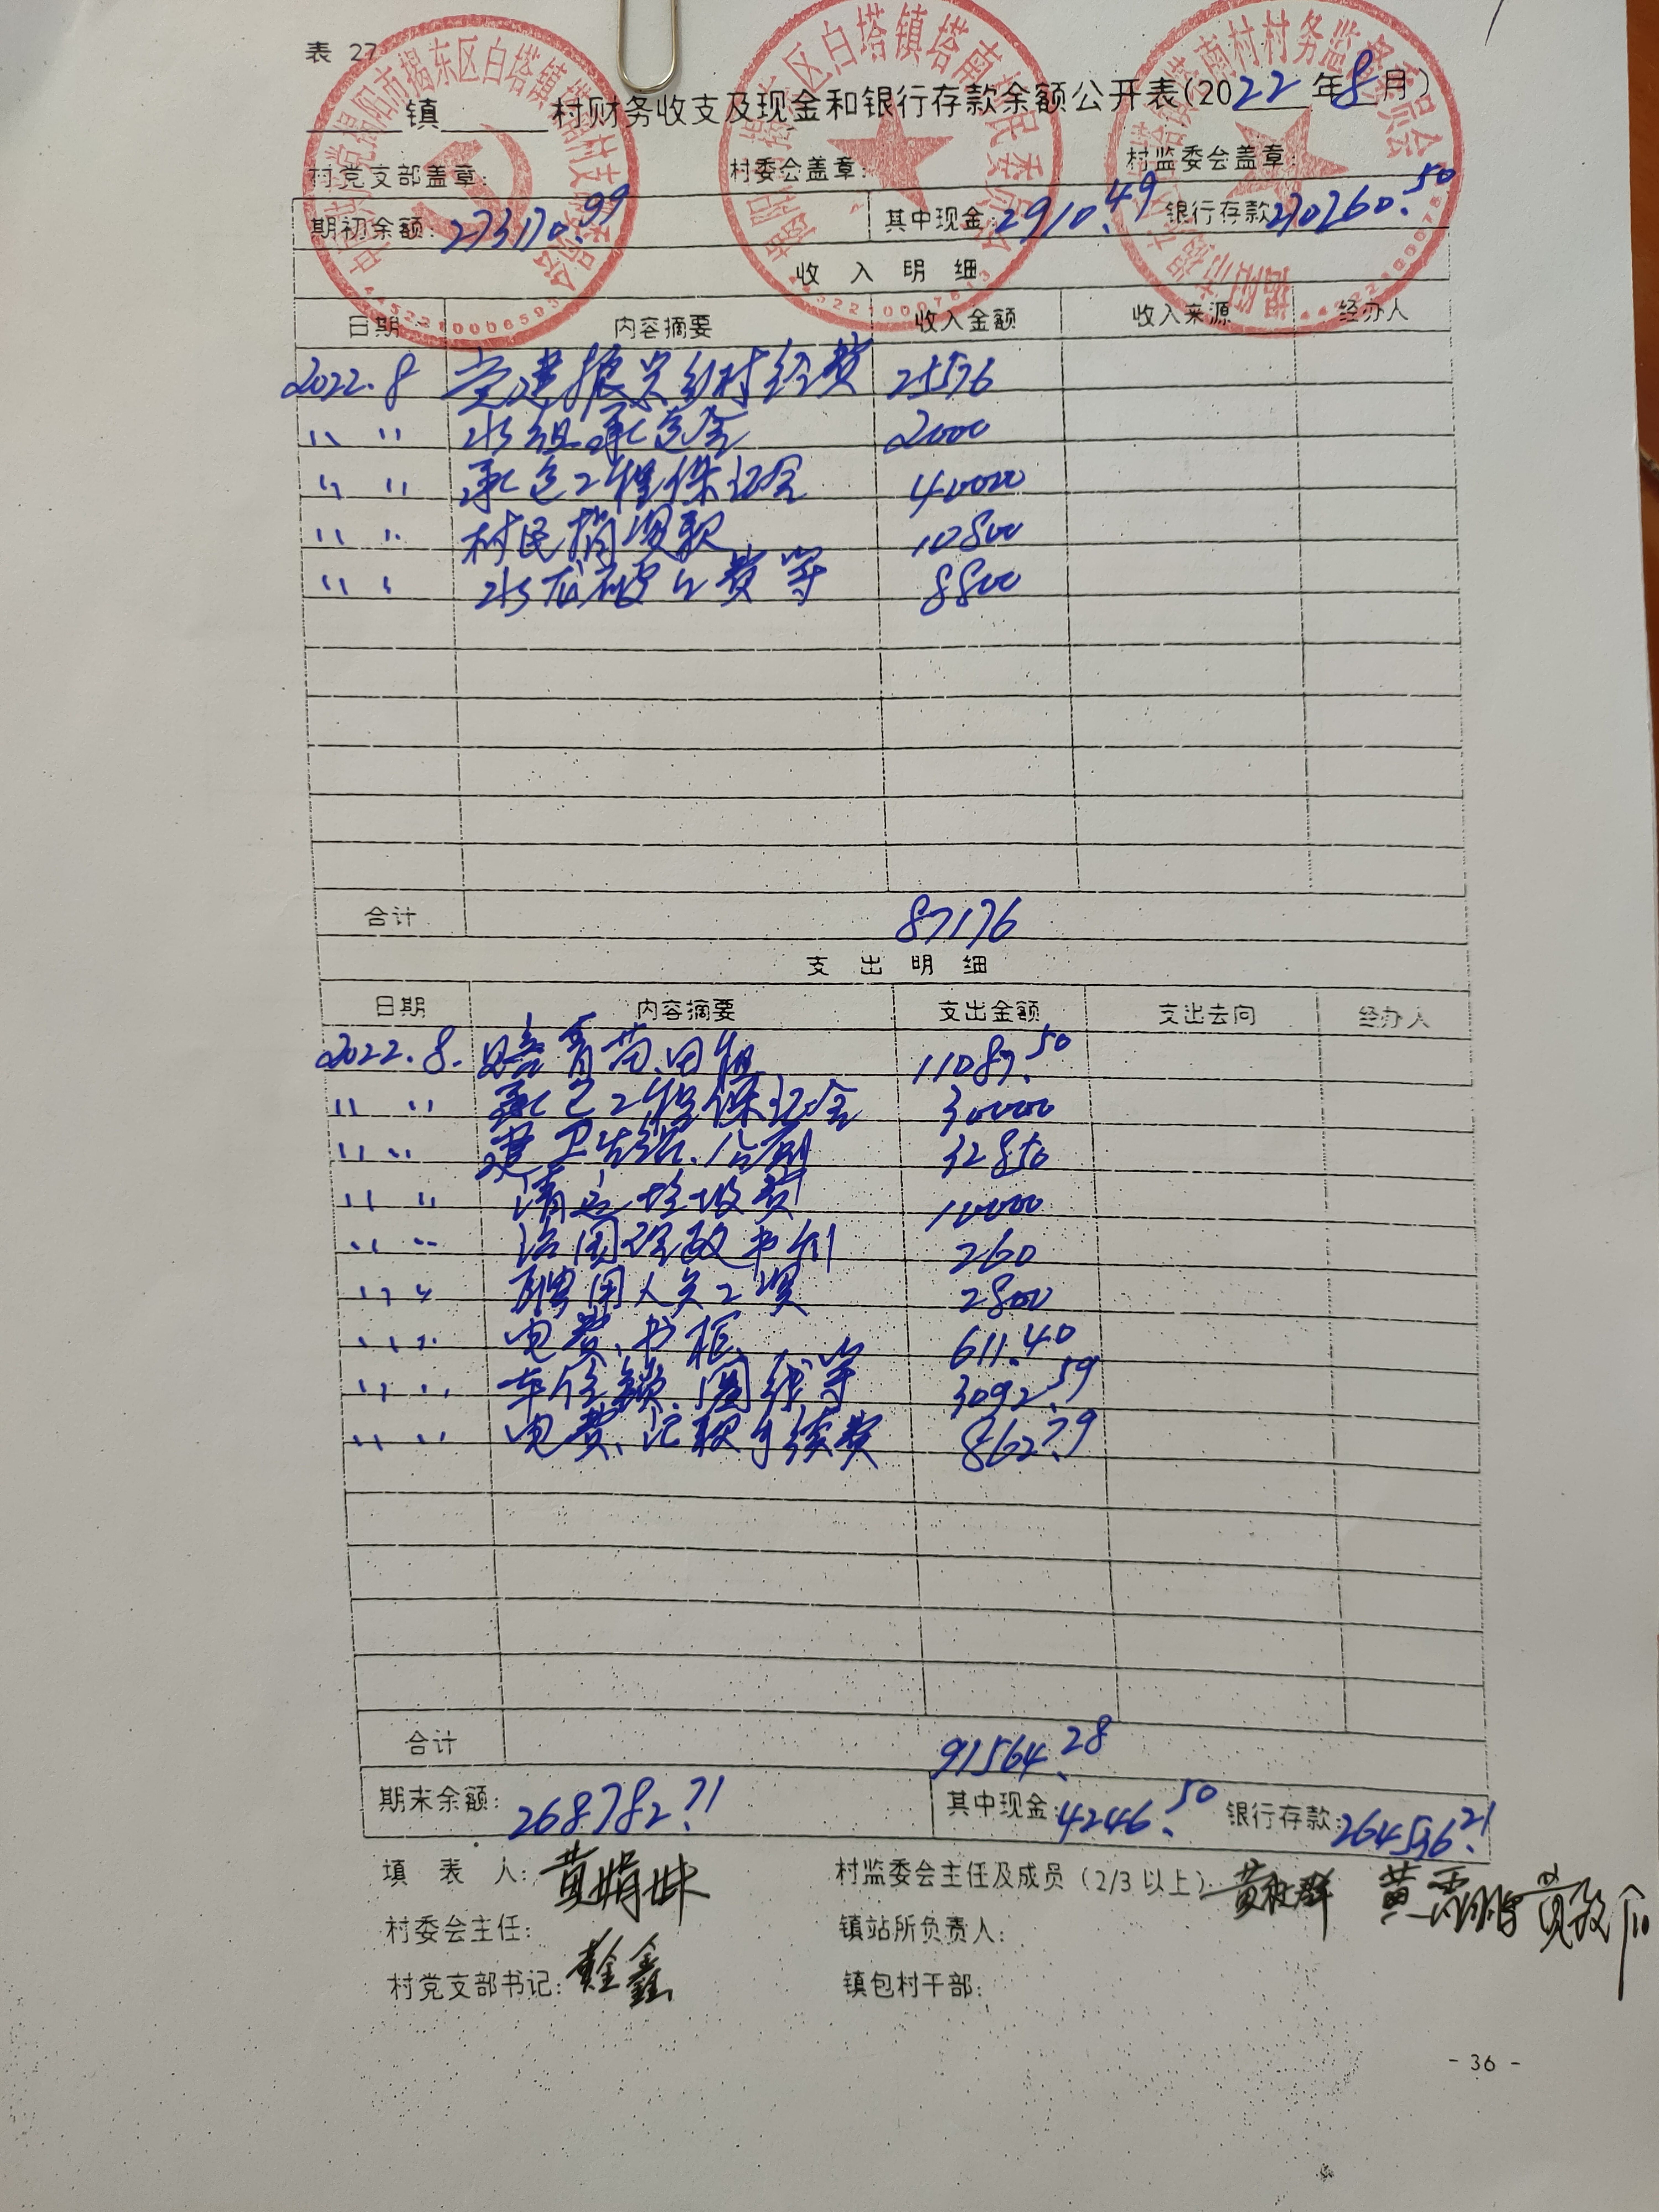 表 27
镇 村财务收支及现金和银行存款余额公开表(2022年8月)
村党支部盖章: 村委会盖章: 村监委会盖章:
期初余额: 273170.99 其中现金: 2910.49 银行存款 270260.50
收 入 明 细
日期 内容摘要 收入金额 收入来源 经办人
2022.8 党建振兴乡村经费 25576
〃 〃 水组承包金 2000
〃 〃 承包工程保证金 40000
〃 〃 村民捐资款 10800
〃 〃 水 费等 8800
合计 87176
支 出 明 细
日期 内容摘要 支出金额 支出去向 经办人
2022.8. 赔青苗.田租 11087.50
〃 〃 承包工程保证金 30000
〃 〃 建卫生站.公厕 32850
〃 〃 清运垃圾费 10000
〃 〃 治国理政书刊 260
〃 〃 聘用人员工资 2800
〃 〃 电费、书柜 611.40
〃 〃 车位锁、围线等 3092.59
〃 〃 电费、汇款手续费 862.79
合计 91564.28
期末余额: 268782.71 其中现金: 4246.50 银行存款: 264536.21
填 表 人: 黄娟妹 村监委会主任及成员(2/3 以上)
村委会主任: 镇站所负责人:
村党支部书记: 黄金鑫 镇包村干部:
- 36 -